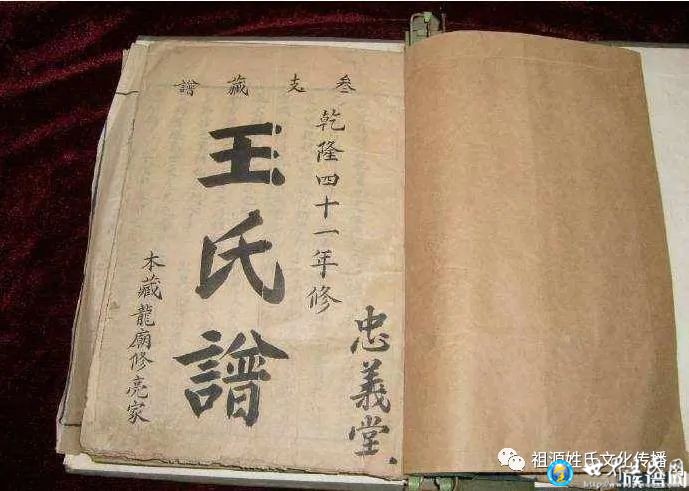 叁支藏譜
乾隆四十一年修
忠義堂
王氏譜
本藏龍廟修亮家
祖源姓氏文化传播
族谱网